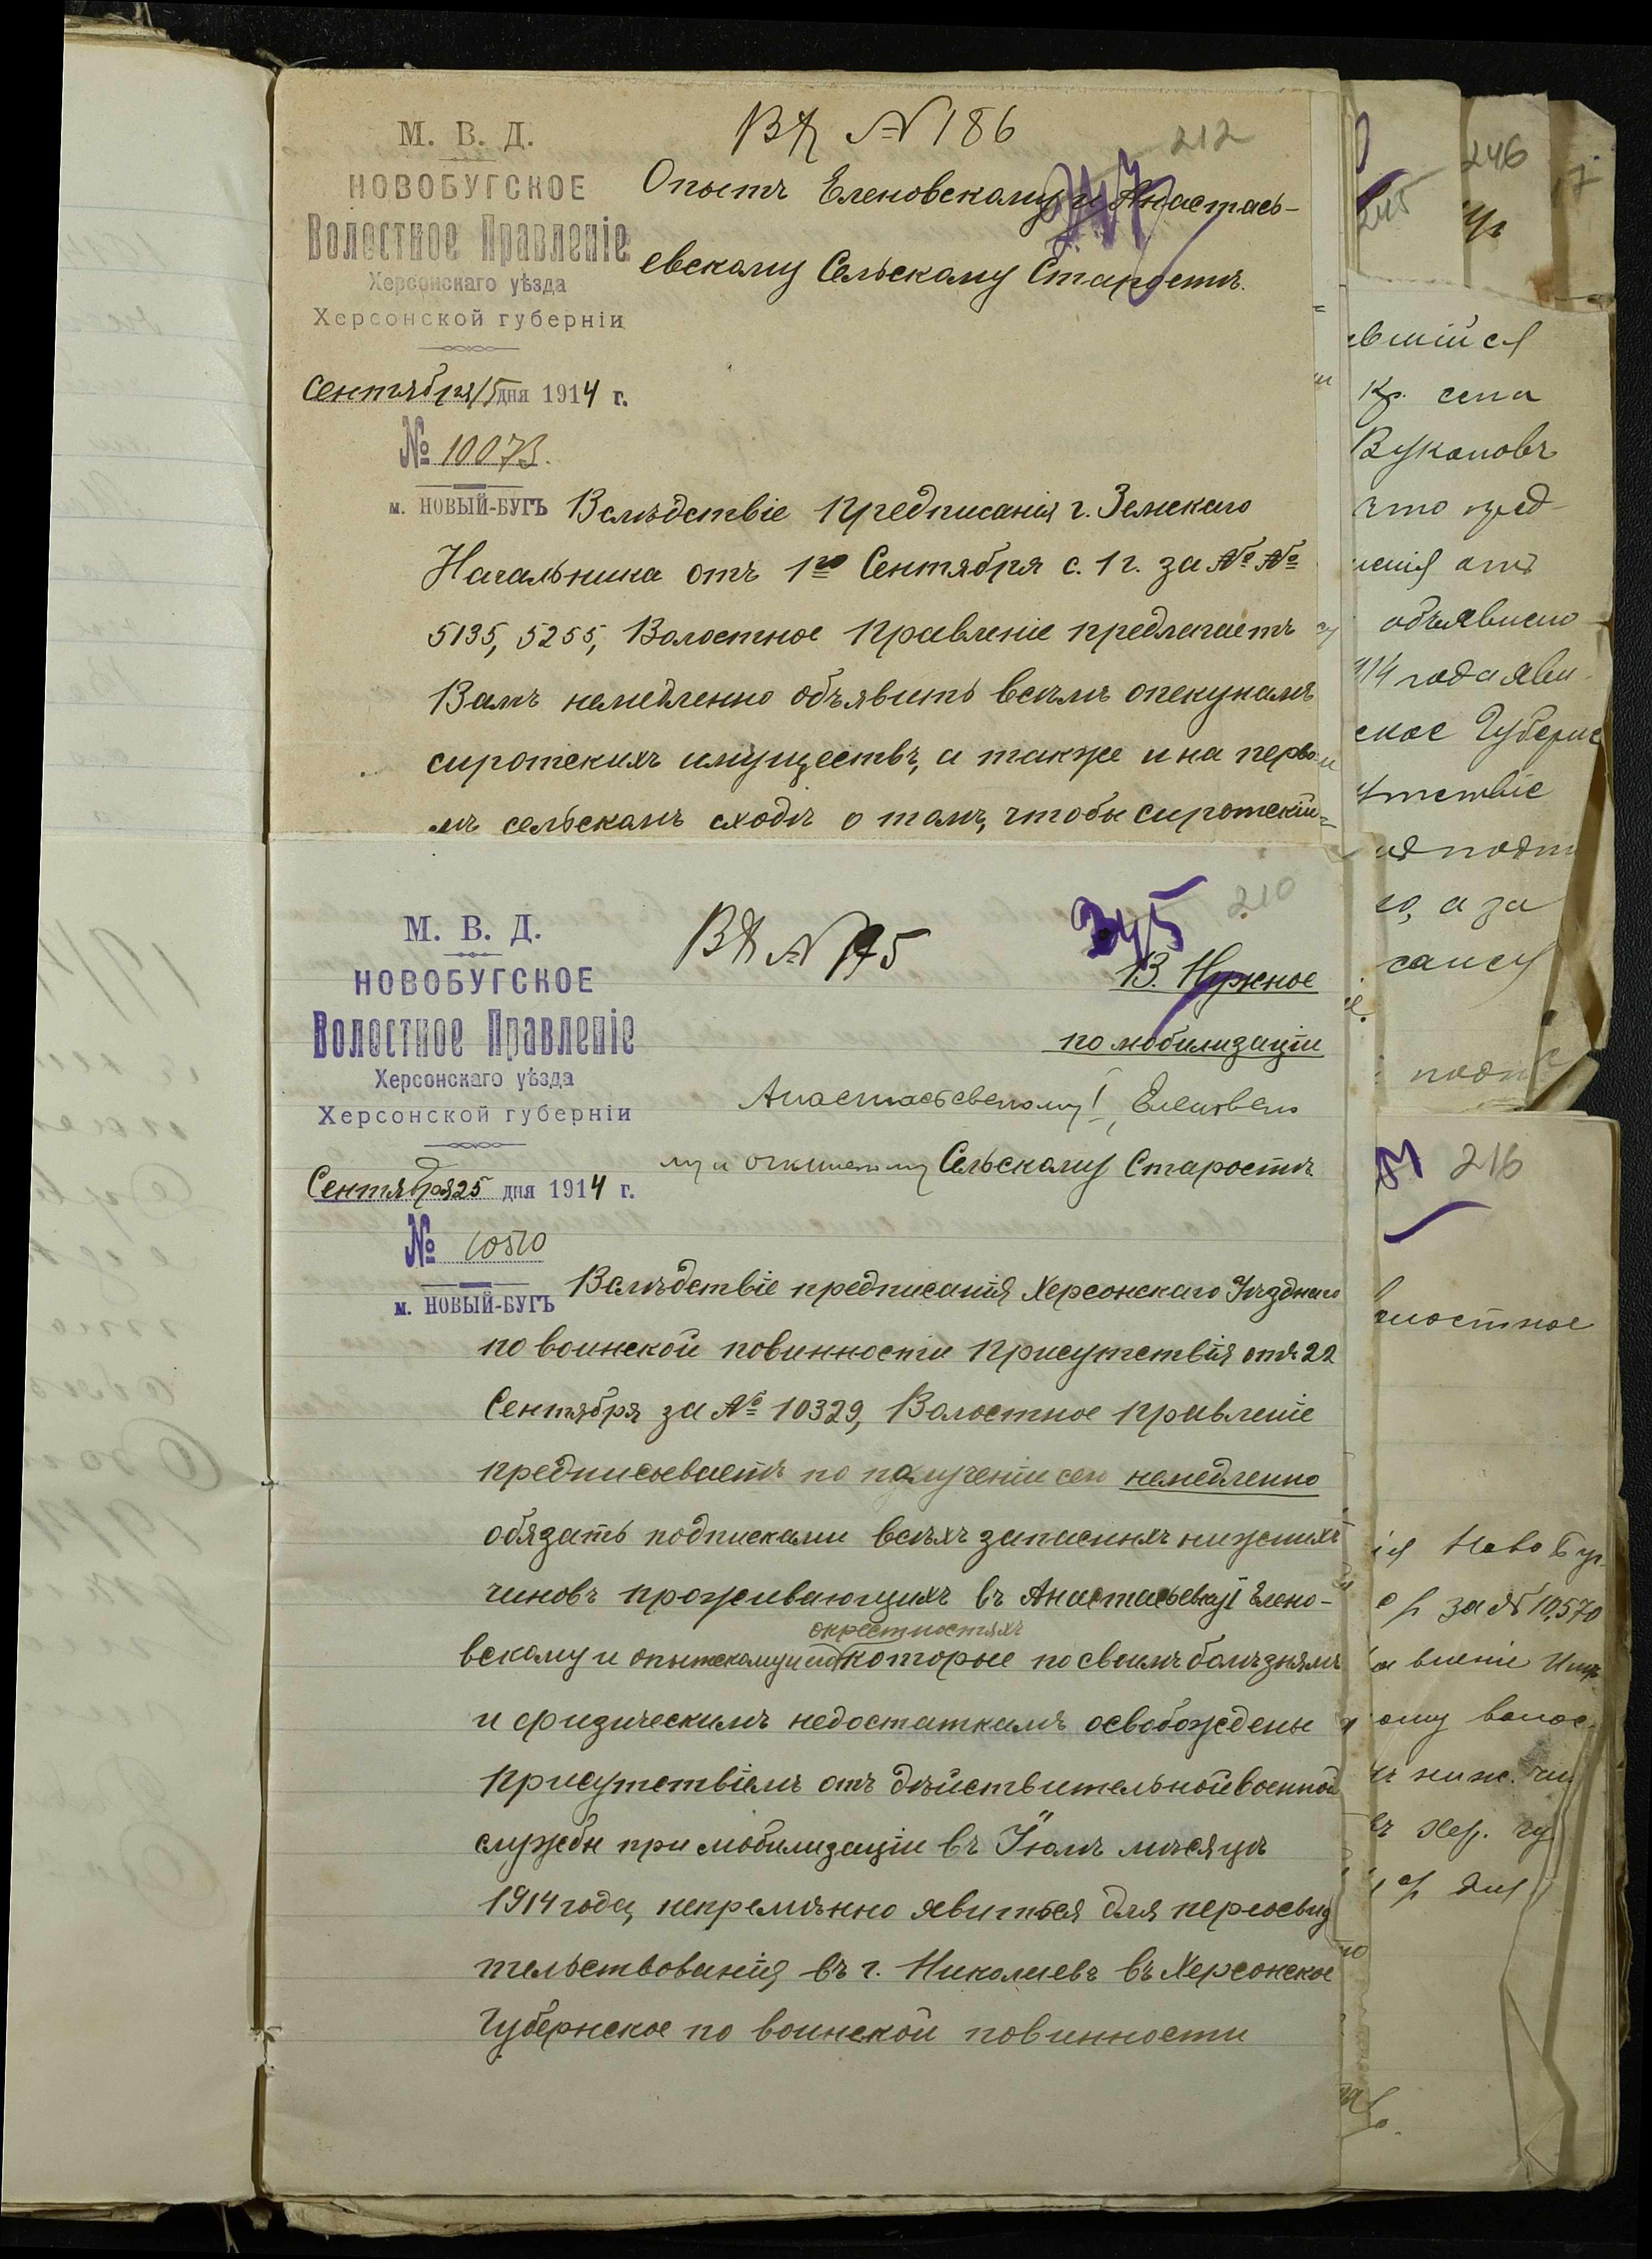 М. В. Д.
НОВОБУГСКОЕ
Волостное Правленіе
Херсонскаго уѣзда
Херсонской губерніи
Сентября 15 дня 1914 г.
№ 10073.
м. НОВЫЙ-БУГЪ
Вх № 186
212
Опытн Еленовскому и Анастась-
евскому Сельскому Старостѣ.
Вслѣдствіе предписанія г. Земскаго
Начальника отъ 1го Сентября с. г. за №№
5135, 5255, Волостное Правленіе предлагаетъ
Вамъ немедленно объявить всѣмъ опекунамъ
сиротскихъ имуществъ, а также и на перво-
мъ сельскомъ сходѣ о томъ, чтобы сиротскія=
М. В. Д.
НОВОБУГСКОЕ
Волостное Правленіе
Херсонскаго уѣзда
Херсонской губерніи
Сентября 25 дня 1914 г.
№ 10510
м. НОВЫЙ-БУГЪ
Вх № 195
345
210
В. Нужное
по мобилизаціи
Анастасьевскому, Еленовско
му и Сельскому Старостѣ
Вслѣдствіе предписанія Херсонскаго Уѣзднаго
по воинской повинности Присутствія отъ 22
Сентября за № 10329, Волостное Правленіе
предписываетъ по полученіи сего немедленно
обязать подписками всѣхъ запасныхъ нижнихъ
чиновъ проживающихъ въ Анастасьевкѣ Елено-
окрестностяхъ
вскому и опытскому которые по своимъ болѣзнямъ
и физическимъ недостаткамъ освобождены
Присутствіемъ отъ дѣйствительной военной
службы при мобилизаціи въ Іюлѣ мѣсяцѣ
1914 года, непремѣнно явиться для переосвид
тельствованія въ г. Николаевъ въ Херсонское
Губернское по воинской повинности
246
245
вшійся
Кр. села
Вукановъ
что пред-
объявлено
914 года яви-
ское Губернс
утствіе
го, а за
216
лостное
ія НовоБуг-
за № 10,570
вленіе
ому волос-
ниж. чи
Хер. гу